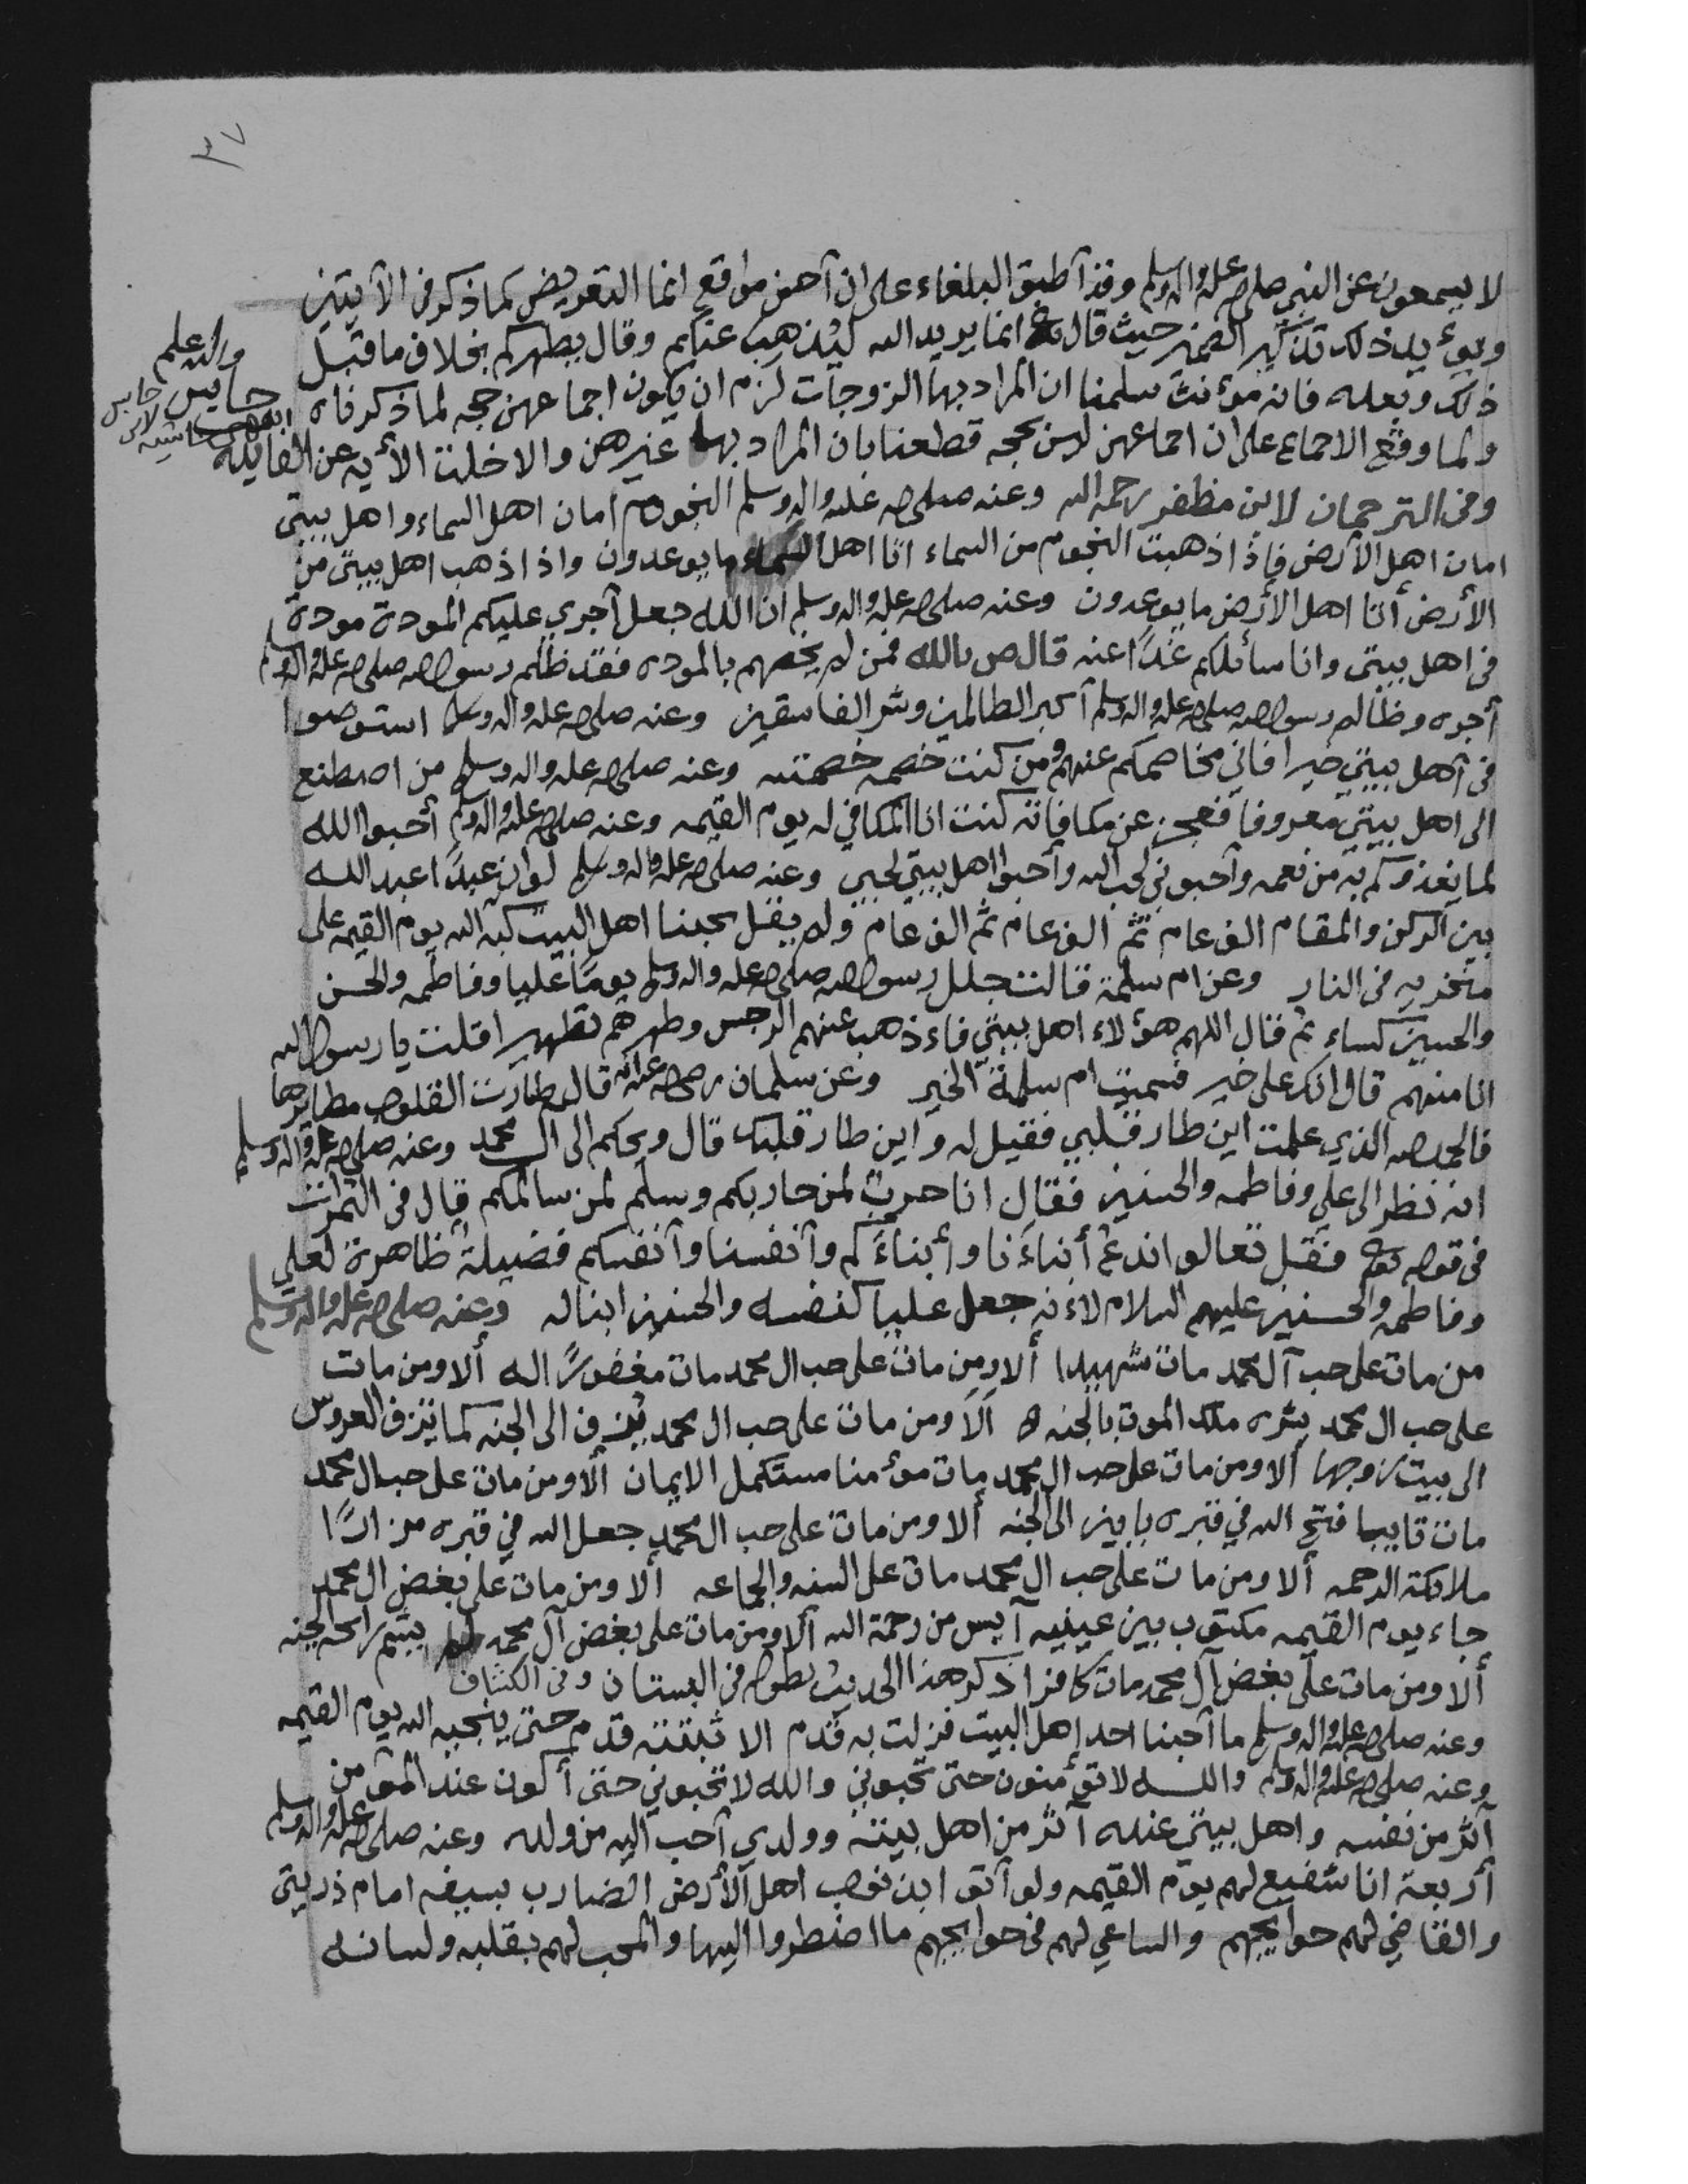 ٣٧
لا يسمعون عن النبي صلى الله عليه واله وسلم وقد أطبق البلغاء على ان آحسن مواقع انما التعريض كما ذكر في الآيتين
ويؤيد ذلك تذكير الضمير حيث قال تع انما يريد الله ليذهب عنكم وقال يطهركم بخلاف ما قبل
والله اعلم
ذلك وبعده فانه مؤنث سلمنا ان المراد بها الزوجات لزم ان يكون اجماعهن حجه لما ذكرناه
ولما وقع الاجماع على ان اجماعهن ليس بحجه قطعنا بان المراد بها غيرهن والا خلت الأيه عن الفايده
وفي الترجمان لابن مظفر رحمه الله وعنه صلى الله عليه واله وسلم النجوم امان اهل السماء واهل بيتي
امان اهل الأرض فاذا ذهبت النجوم من السماء اتا اهل السماء ما يوعدون واذا ذهب اهل بيتي من
الأرض أتا اهل الأرض ما يوعدون وعنه صلى الله عليه واله وسلم ان الله جعل آجري عليكم المودة مودة
في اهل بيتي وانا سائلكم غدًا عنه قال ص بالله فمن لم يخصهم بالموده فقد ظلم رسول الله صلى الله عليه واله وسلم
أجره وظالم رسول الله صلى الله عليه واله وسلم آكبر الظالمين وشر الفاسقين وعنه صلى الله عليه واله وسلم استوصوا
في آهل بيتي خيرا فاني مخاصمكم عنهم ومن كنت خصمه خصمته وعنه صلى الله عليه واله وسلم من اصطنع
الى اهل بيتي معروفا فعجز عن مكافاته كنت انا المكافي له يوم القيمه وعنه صلى الله عليه واله وسلم أحبوا الله
لما يغذوكم به من نعمه وآحبوني لحب الله وآحبوا اهل بيتي لحبي وعنه صلى الله عليه واله وسلم لو ان عبدًا عبد الله
بين الركن والمقام الف عام ثم الف عام ثم الف عام ولم يقل بحبنا اهل البيت كبه الله يوم القيمه على
منخريه في النار وعن ام سلمة قالت جلل رسول الله صلى الله عليه واله وسلم يومًا عليا وفاطمه والحسن
والحسين كساء ثم قال اللهم هؤلاء اهل بيتي فاءذهب عنهم الرجس وطهرهم تطهيرا قلت يا رسول الله
انا منهم قال انك على خير فسميت ام سلمة الخير وعن سلمان رضي الله عنه انه قال طارت القلوب مطايرها
فالحمد لله الذي علمت اين طار قلبي فقيل له واين طار قلبك قال ويحكم الى ال محمد وعنه صلى الله عليه واله وسلم
انه نظر الى علي وفاطمه والحسنين فقال انا حرب لمن حاربكم وسلم لمن سالمكم قال في الثمرات
في قوله تع فقل تعالوا ندع أبناءَنا وأبناءَكم وآنفسنا وآنفسكم فضيلة ظاهرة لعلي
وفاطمه والحسنين عليهم السلام لاءنه جعل عليا كنفسه والحسنين ابنا له وعنه صلى الله عليه واله وسلم
من مات على حب آل محمد مات شهيدا ألا ومن مات على حب ال محمد مات مغفورًا له ألا ومن مات
على حب ال محمد بشره ملك الموت بالجنه ألا ومن مات على حب ال محمد يزف الى الجنه كما تزف العروس
الى بيت زوجها ألا ومن مات على حب ال محمد مات مؤمنا مستكمل الايمان ألا ومن مات على حب ال محمد
مات تايبا فتح الله في قبره بابين الى الجنه ألا ومن مات على حب ال محمد جعل الله في قبره مزارًا
ملائكة الرحمه ألا ومن مات على حب ال محمد مات على السنه والجماعه ألا ومن مات على بغض ال محمد
جاء يوم القيمه مكتوب بين عينيه آيس من رحمة الله ألا ومن مات على بغض آل محمد لم يشم رائحه الجنه
ألا ومن مات على بغض آل محمد مات كافرا ذكر هذا الحديث بطوله في البستان وفي الكشاف
وعنه صلى الله عليه واله وسلم ما آحبنا احد اهل البيت فزلت به قدم الا ثبتته قدم حتى ينجيه الله يوم القيمه
وعنه صلى الله عليه واله وسلم والله لا تؤمنون حتى تحبوني والله لا تحبوني حتى أكون عند المؤمن
آثر من نفسه واهل بيتي عنده آثر من اهل بيته وولدي آحب اليه من ولده وعنه صلى الله عليه واله وسلم
أربعة انا شفيع لهم يوم القيمه ولو آتوا بذنوب اهل الأرض الضارب بسيفه امام ذريتي
والقاضي لهم حوايجهم والساعي لهم في حوايجهم ما اضطروا اليها والمحب لهم بقلبه ولسانه